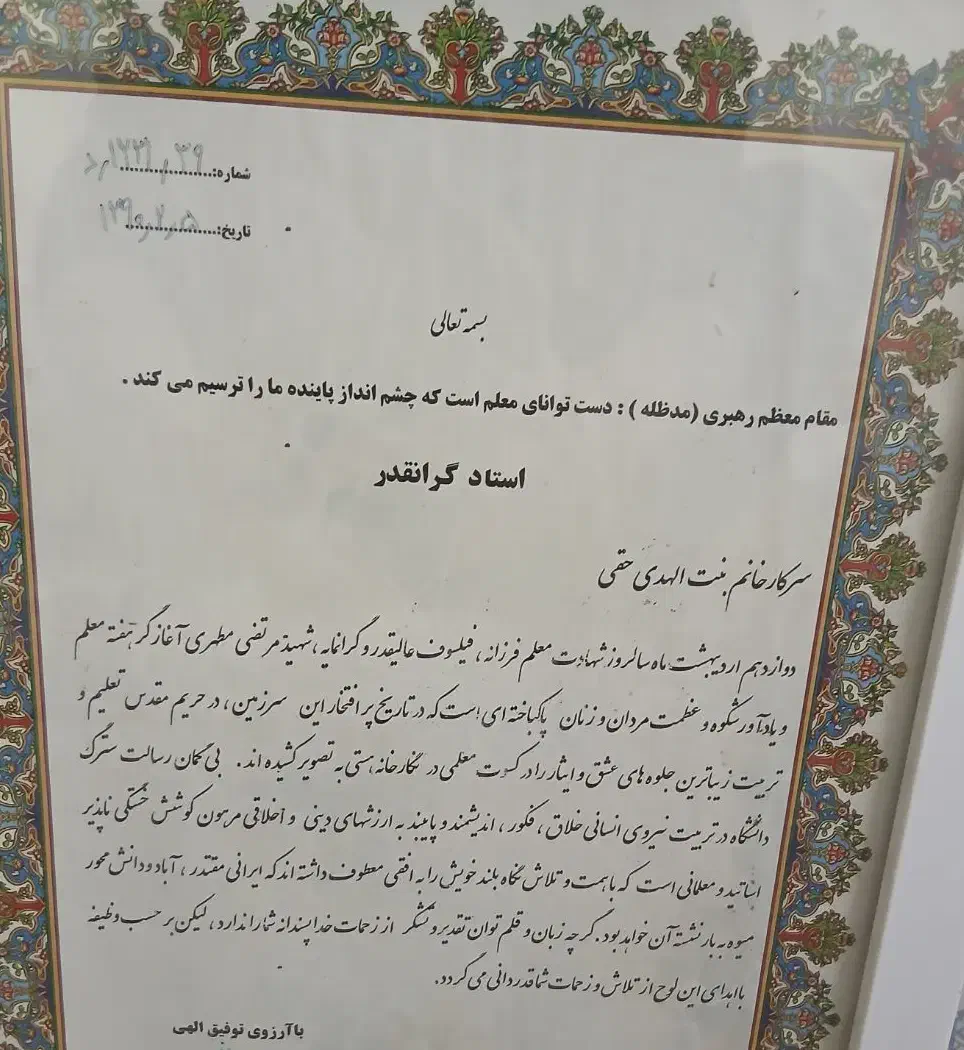 شماره: ۳۹/۱۷۲۱/د
تاریخ: ۱۳۹۰/۲/۵
بسمه تعالی
مقام معظم رهبری (مدظله ) : دست توانای معلم است که چشم انداز پاینده ما را ترسیم می کند .
استاد گرانقدر
سرکار خانم بنت الهدی حقی
دوازدهم اردیبهشت ماه سالروز شهادت معلم فرزانه ، فیلسوف عالیقدر و گرانمایه ، شهید مرتضی مطهری آغازگر هفته معلم
و یادآور شکوه و عظمت مردان و زنان پاکباخته ای است که در تاریخ پر افتخار این سرزمین ، در حریم مقدس تعلیم و
تربیت زیباترین جلوه های عشق و ایثار را در کسوت معلمی در نگارخانه هستی به تصویر کشیده اند . بی گمان رسالت سترگ
دانشگاه در تربیت نیروی انسانی خلاق ، فکور ، اندیشمند و پایبند به ارزشهای دینی و اخلاقی مرهون کوشش خستگی ناپذیر
اساتید و معلمانی است که با همت و تلاش نگاه بلند خویش را به افقی معطوف داشته اند که ایرانی مقتدر ، آباد و دانش محور
میوه به بار نشسته آن خواهد بود . گرچه زبان و قلم توان تقدیر و تشکر از زحمات خداپسندانه شما را ندارد ، لیکن بر حسب وظیفه
با اهدای این لوح از تلاش و زحمات شما قدردانی می گردد .
با آرزوی توفیق الهی